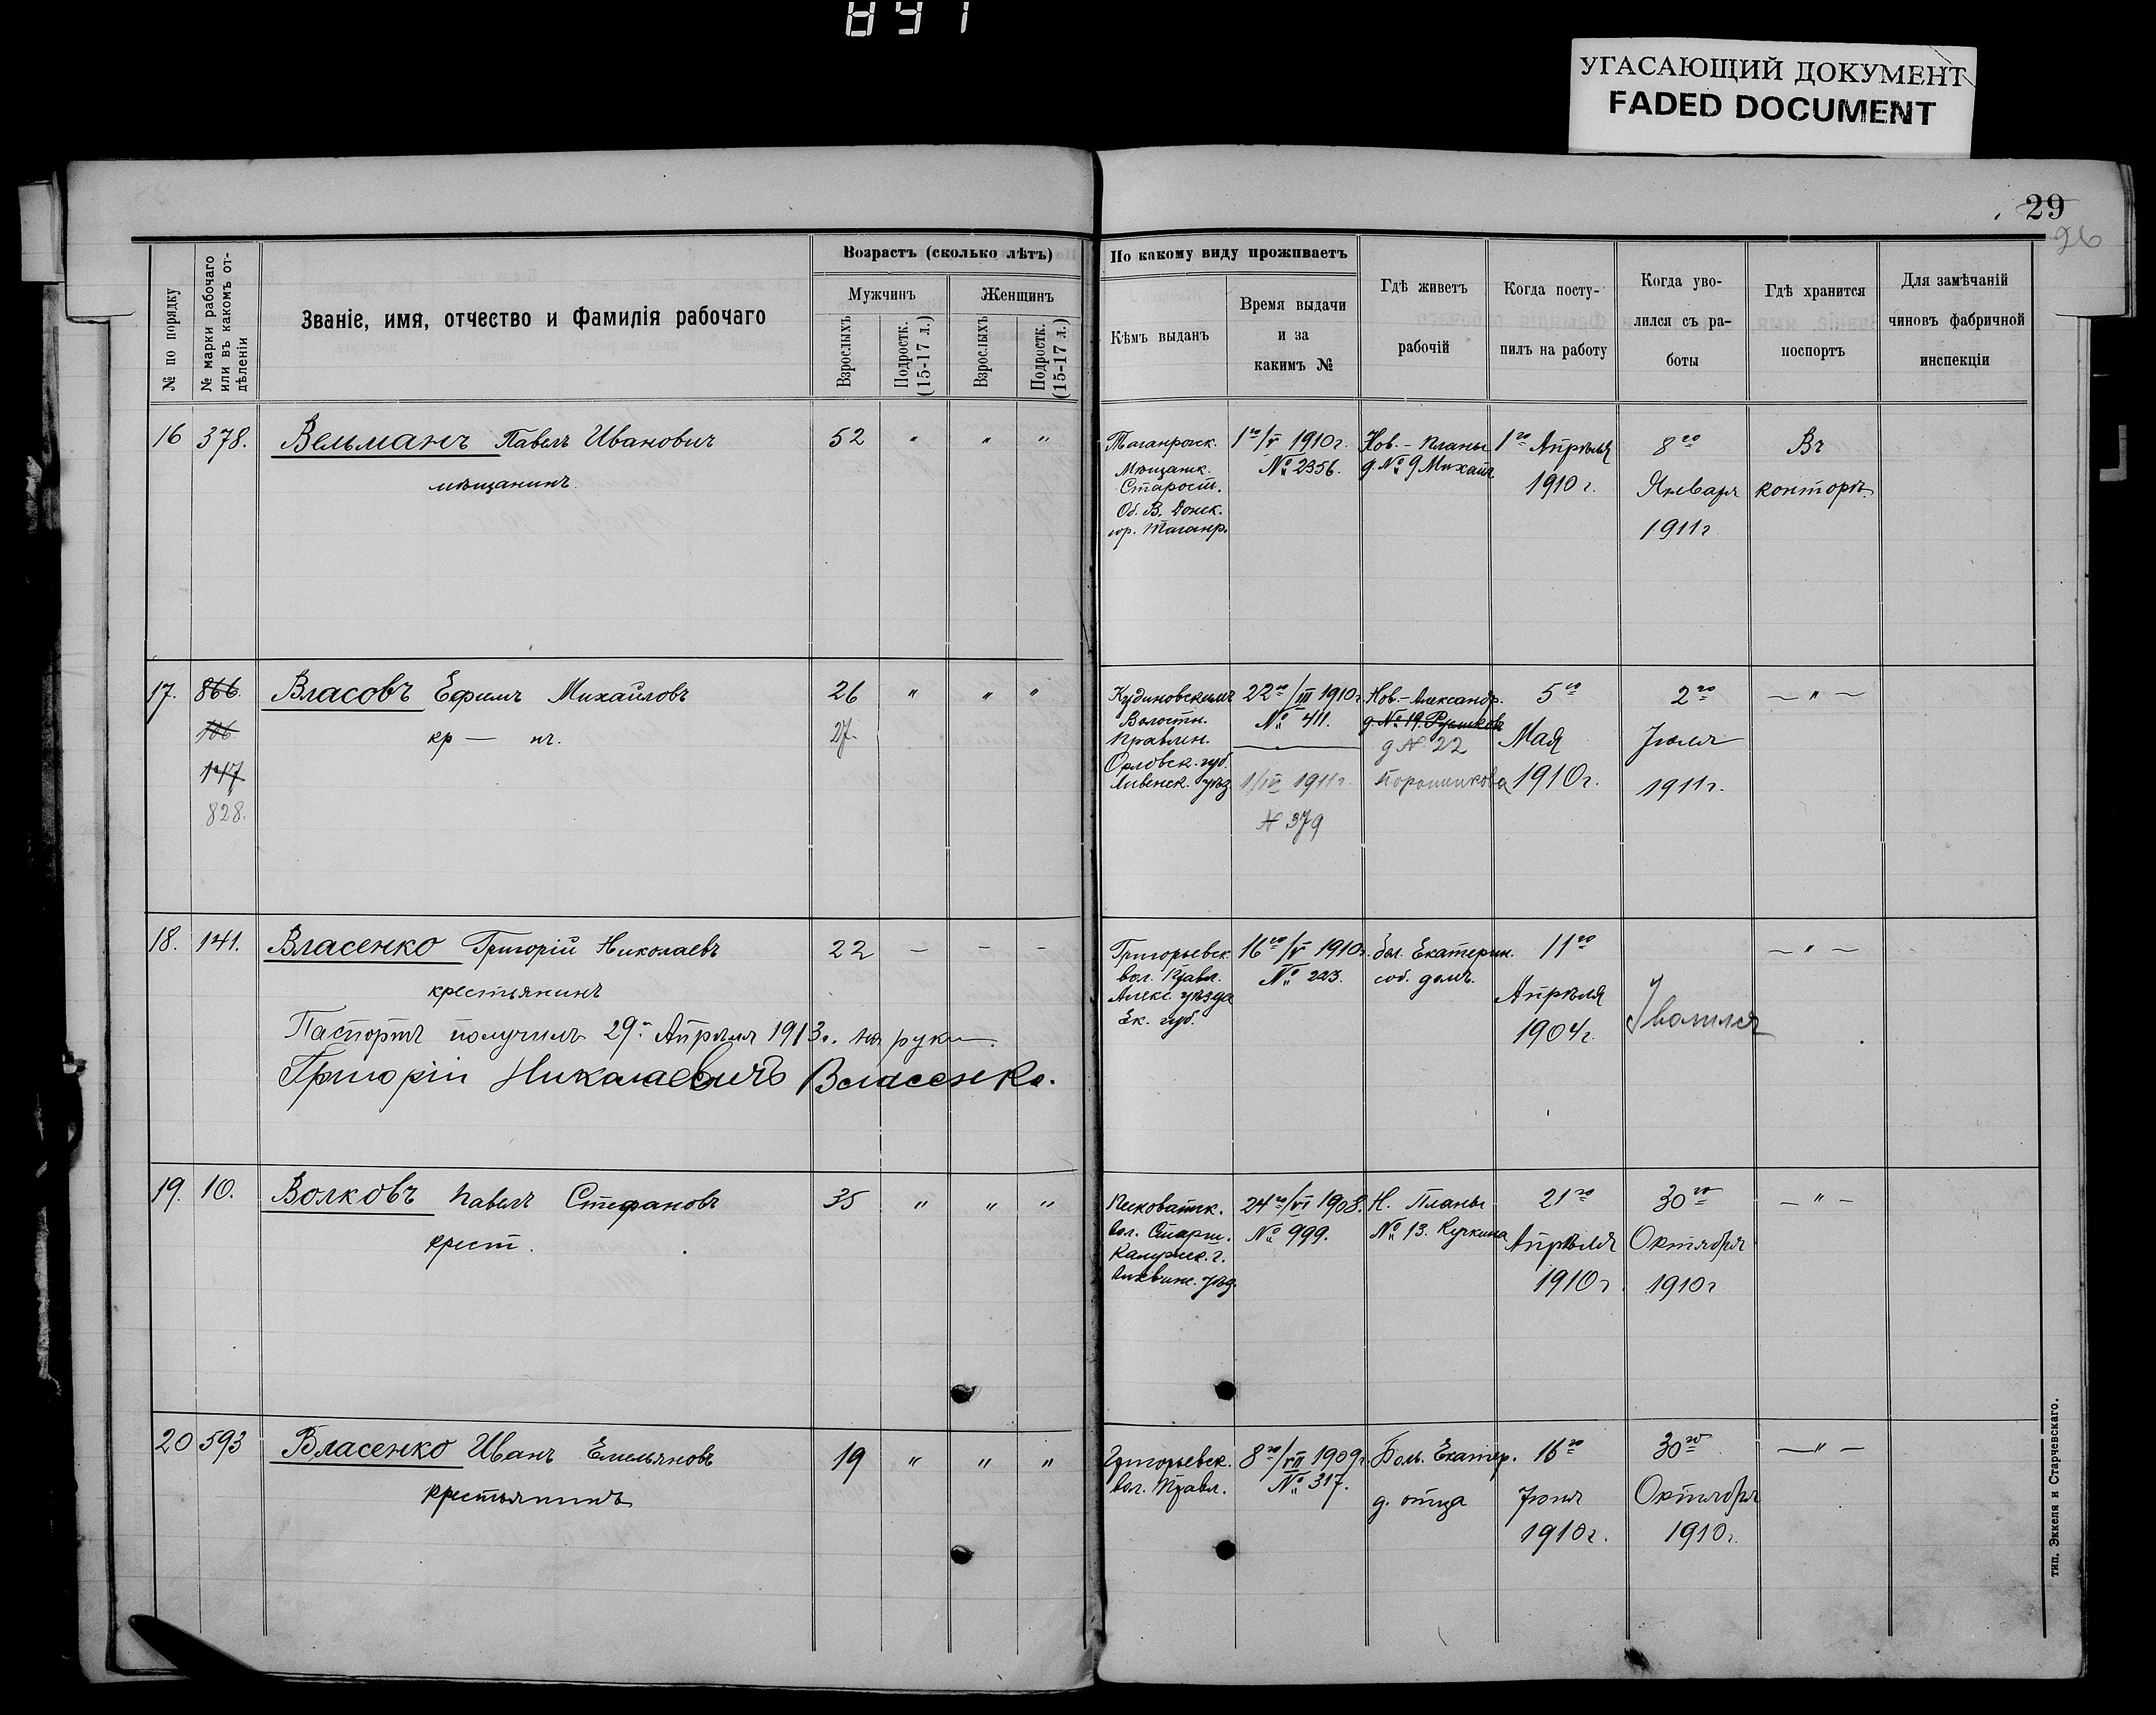 891
УГАСАЮЩИЙ ДОКУМЕНТ
FADED DOCUMENT
29
96
№ по порядку
№ марки рабочаго или въ какомъ отдѣленіи
Званіе, имя, отчество и Фамилія рабочаго
Возрастъ (сколько лѣтъ)
Мужчинъ
Женщинъ
Взрослыхъ
Подростк. (15-17 л.)
Взрослыхъ
Подростк. (15-17 л.)
По какому виду проживаетъ
Кѣмъ выданъ
Время выдачи
и за
какимъ №
Гдѣ живетъ
рабочій
Когда посту-
пилъ на работу
Когда уво-
лился съ ра-
боты
Гдѣ хранится
поспортъ
Для замѣчаній
чиновъ фабричной
инспекціи
16 378. Вельманъ Павелъ Ивановичъ 52 " " "
мѣщанинъ.
Таганрогск.
Мѣщанск.
Старост.
Об. В. Донск.
гор. Таганр.
1го/V 1910г.
№ 2356.
Нов.-Планы
д. № 9 Михайл.
1го Апрѣля
1910 г.
8го
Января
1911г
Въ
конторѣ
17. 866. Власовъ Ефимъ Михайловъ 26 " " "
186.
кр — нъ.
27.
147
828.
Кудиновскимъ
Волостн.
Правлен.
Орловск. губ.
Ливенск. уѣз
22го/III 1910г.
№ 411.
1/IV 1911г.
№ 379
Нов.-Александр.
д. № 19.
д № 22
Порошикова
5го
Мая
1910г.
2го
Іюля
1911г.
— " —
18. 141. Власенко Григорій Николаевъ 22 — — —
крестьянинъ
Паспортъ получилъ 29го Апрѣля 1913г. на руки.
Григорій Николаевичъ Власенко.
Григорьевск.
вол. Правл.
Алекс. уѣзда
Ек. губ.
16го/V 1910г.
№ 223.
бол. Екатерин.
соб. домъ.
11го
Апрѣля
1904г.
Уволился
— " —
19. 10. Волковъ Павелъ Стефановъ 35 " " "
крест.
Песковатск.
вол. Старш.
Калужск. г.
Лихвинс. уѣзд.
24го/VI 1908.
№ 999.
Н. Планы
№ 13. Кучкина
21го
Апрѣля
1910г.
30го
Октября
1910г
— " —
20 593 Власенко Иванъ Емельяновъ 19 " " "
крестьянинъ
Григорьевск.
вол. Правл.
8го/VII 1909г.
№ 317.
Боль. Екатер.
д. отца
16го
Іюня
1910г.
30го
Октября
1910г.
— " —
тип. Эккеля и Старчевскаго.